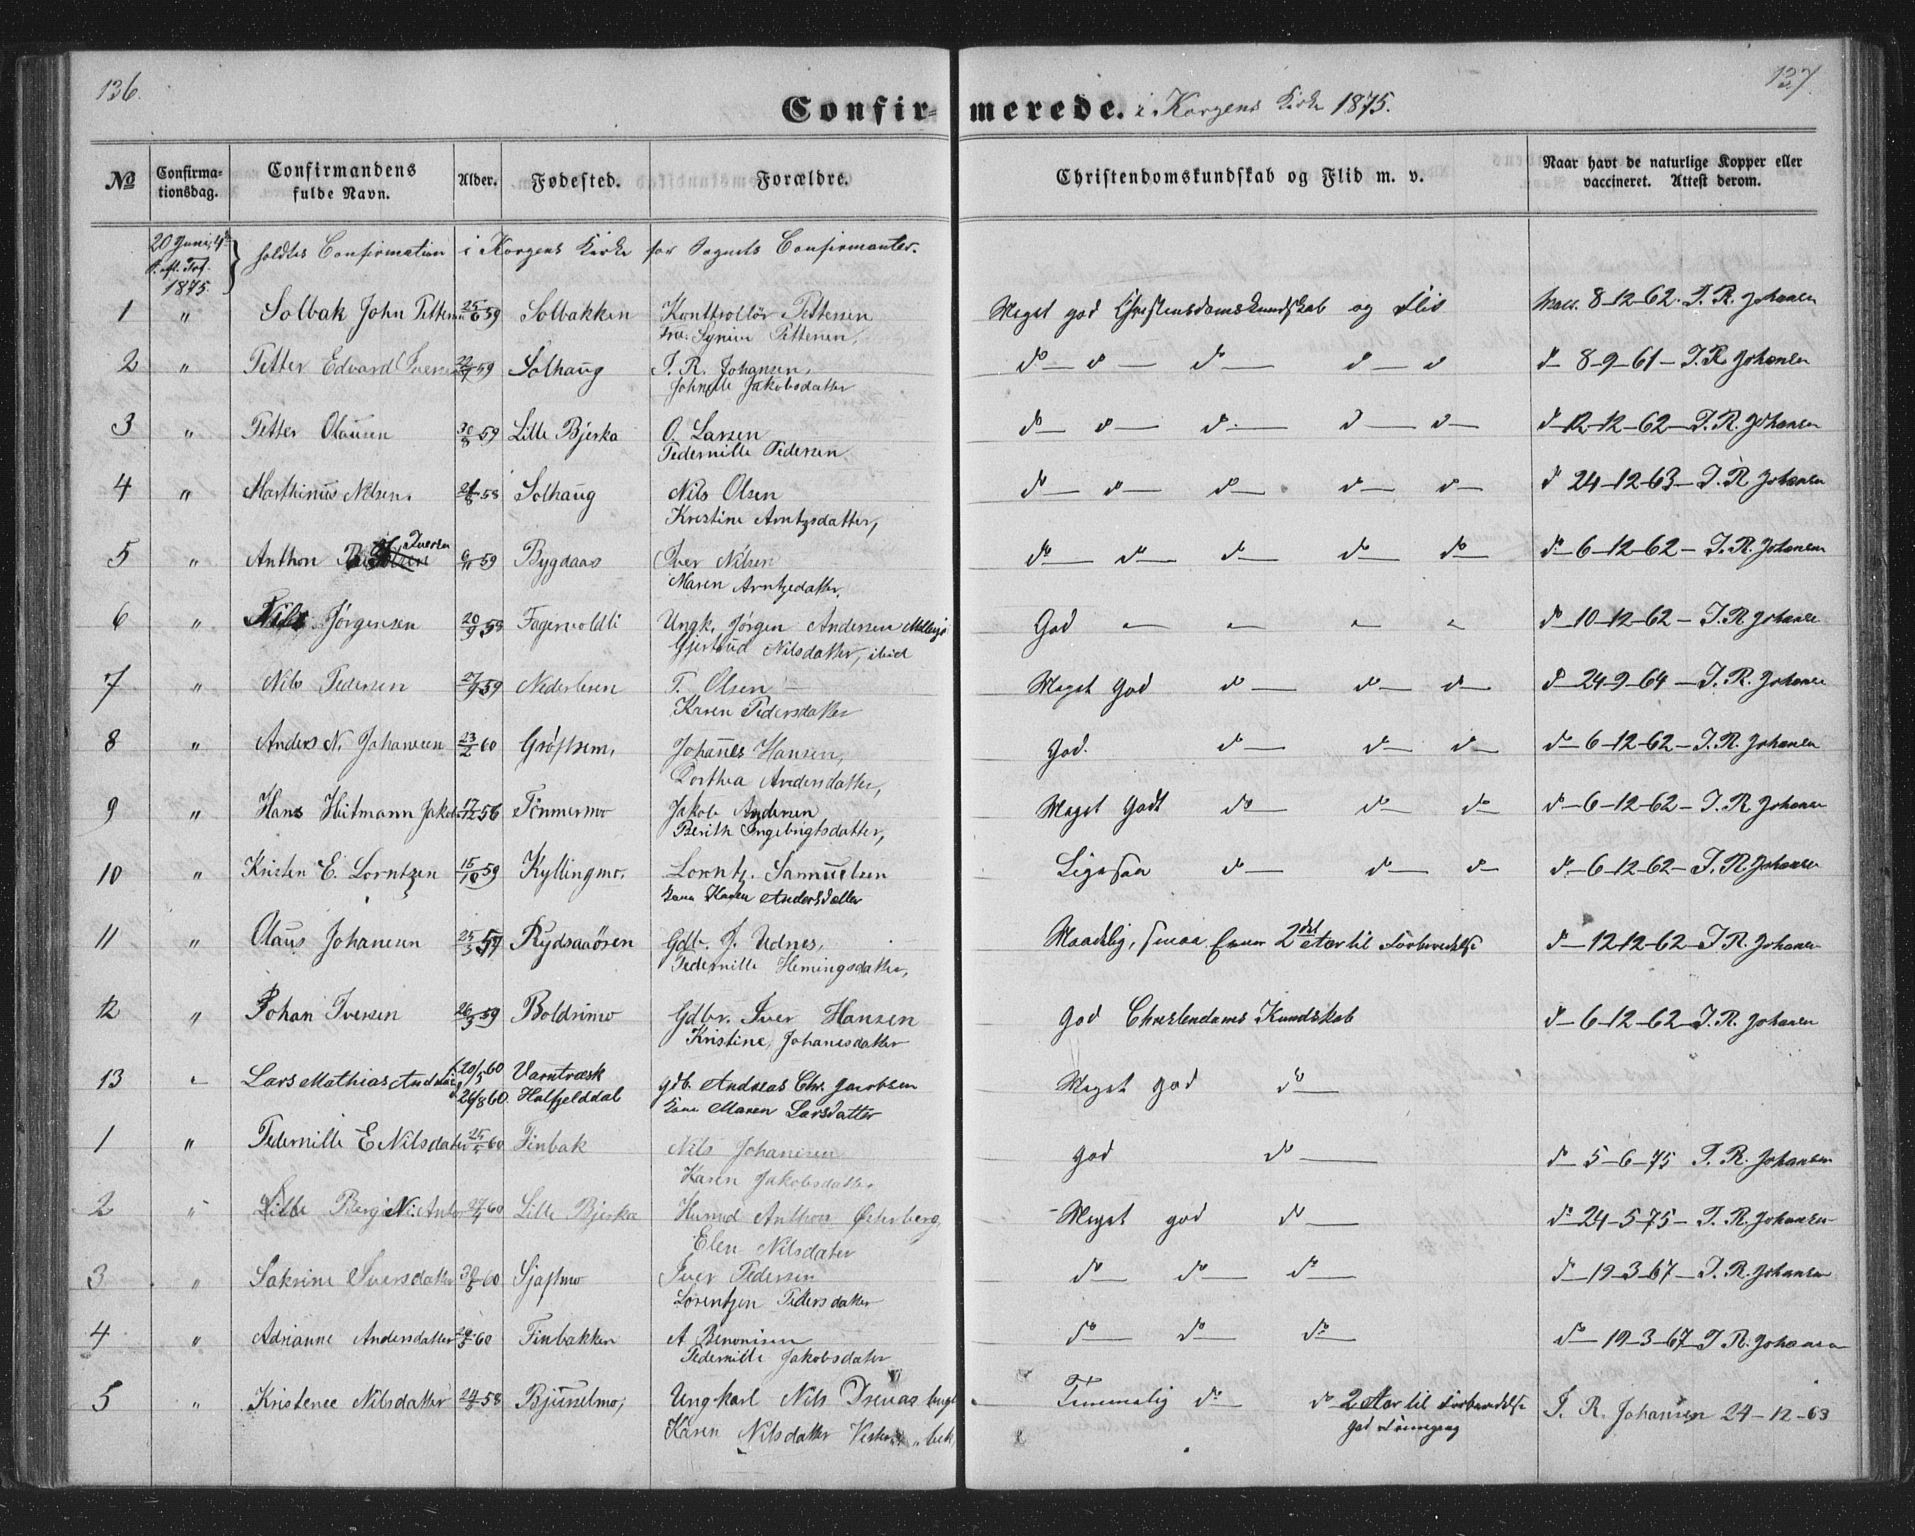 136.
137.
Confirmerede. i Korgens Kirke 1875.
No Confirmationsdag. Confirmandens fulde Navn. Alder. Fødested. Forældre. Christendomskundskab og Flid m. v. Naar havt de naturlige Kopper eller vaccineret. Attest derom.
20 Juni, 4de
S. eft. Tref. holdtes Confirmation i Korgens Kirke for Sognets Confirmanter.
1875.
1 " Solbak John Petter 25/6 59 Solbakken Konttrollör Pettersen Meget god Christensdomskundskab og Flid Vacc. 8-12-62. I. R. Johansen
Fru Synive Pettersen,
2 " Petter Edvard Iversen 59 Solhaug I. R. Johansen, do do do do do do 8-9-61- I. R. Johansen
Johnette Jakobsdatter
3 " Petter Olausen 30/8 59 Lille Bjerka O. Larsen do do do do do do 12-12-62- I. R. Johansen
Pedernille Pedersen
4 " Marthinus Nilsen. 58 Solhaug Nils Olsen do do do do do do 24-12-63- I. R. Johansen
Kristine Arntzsdatter,
5 " Anthon Iversen 6/11 59 Bygdaas Iver Nilsen do do do do do do 6-12-62- I. R. Johansen
Maren Arntzsdatter.
6 " Nils Jörgensen 20/9 58 Fagervoldli Ungk. Jörgen Andersen God " " " " do 10-12-62- I. R. Johansen
Gjertrud Nilsdatter, ibid
7 " Nils Pedersen 27/9 59 Nederleren P. Olsen Meget God do do do do 24-9-64- I. R. Johansen
Karen Pedersdatter
8 " Anders N. Johansen 23/2 60 Gröftrem, Johanes Hansen, God. do do do do 6-12-62- I. R. Johansen
Dorthea Andersdatter,
9 " Hans Heitmann Jakobs 17/12 56 Tömmermo Jakob Andersen Meget Godt do do do do 6-12-62- I. R. Johansen
Berith Ingebrigtsdatter,
10 " Kristen E. Lorntzen 15/10 59 Kyllingmo. Lorntz. Samuelsen Ligesaa do do do do 6-12-62- I. R. Johansen
Kone Karen Andersdatter
11 " Olaus Johansen 25/3 57 Rydsaaören Gdb. J. Udnes, Maadelig, smaa Evner 2det Aar til Forberedelse do 12-12-62- I. R. Johansen
Pedernille Hemingsdatter,
12 " Johan Iversen 26/3 59 Boldrimo Gdbr. Iver Hansen God Christendoms Kundskab do 6-12-62- I. R. Johansen
Kristine Johanesdatter
13 " Lars Mathias Andreas f. 20/5 60 Varntræsk gdb. Andreas Chr. Jacobsen Meget god do
d. 26/8 60. Hatfjelddal Kone Maren Larsdatter
1 " Pedernille E Nilsdater 25/5 60 Finbak Nils Johansen god do do 5-6-75 I. R. Johansen
Karen Jakobsdatter
2 " Lille Bergite N. Anton 60 Lille Bjerka Husmd Anthon Österberg, Meget god do do 24-5-75- I. R. Johansen
Elen Nilsdater
3 " Sakrine Iversdatter 30/5 60 Sjaftmo Iver Pedersen do do do do 19-3-67- I. R. Johansen
Lorentzen Pedersdatter
4 " Adrianne Andersdatter 60 Finbakken A Benonisen do do do do 19-3-67 I. R. Johansen
Pedernille Jakobsdater
5 " Kristence Nilsdatter 58 Bjurselmo, Ungkarl Nils Temmelig do do 2 Aar til Forberedelse I. R. Johansen 24-12-63
Karen Nilsdatter god